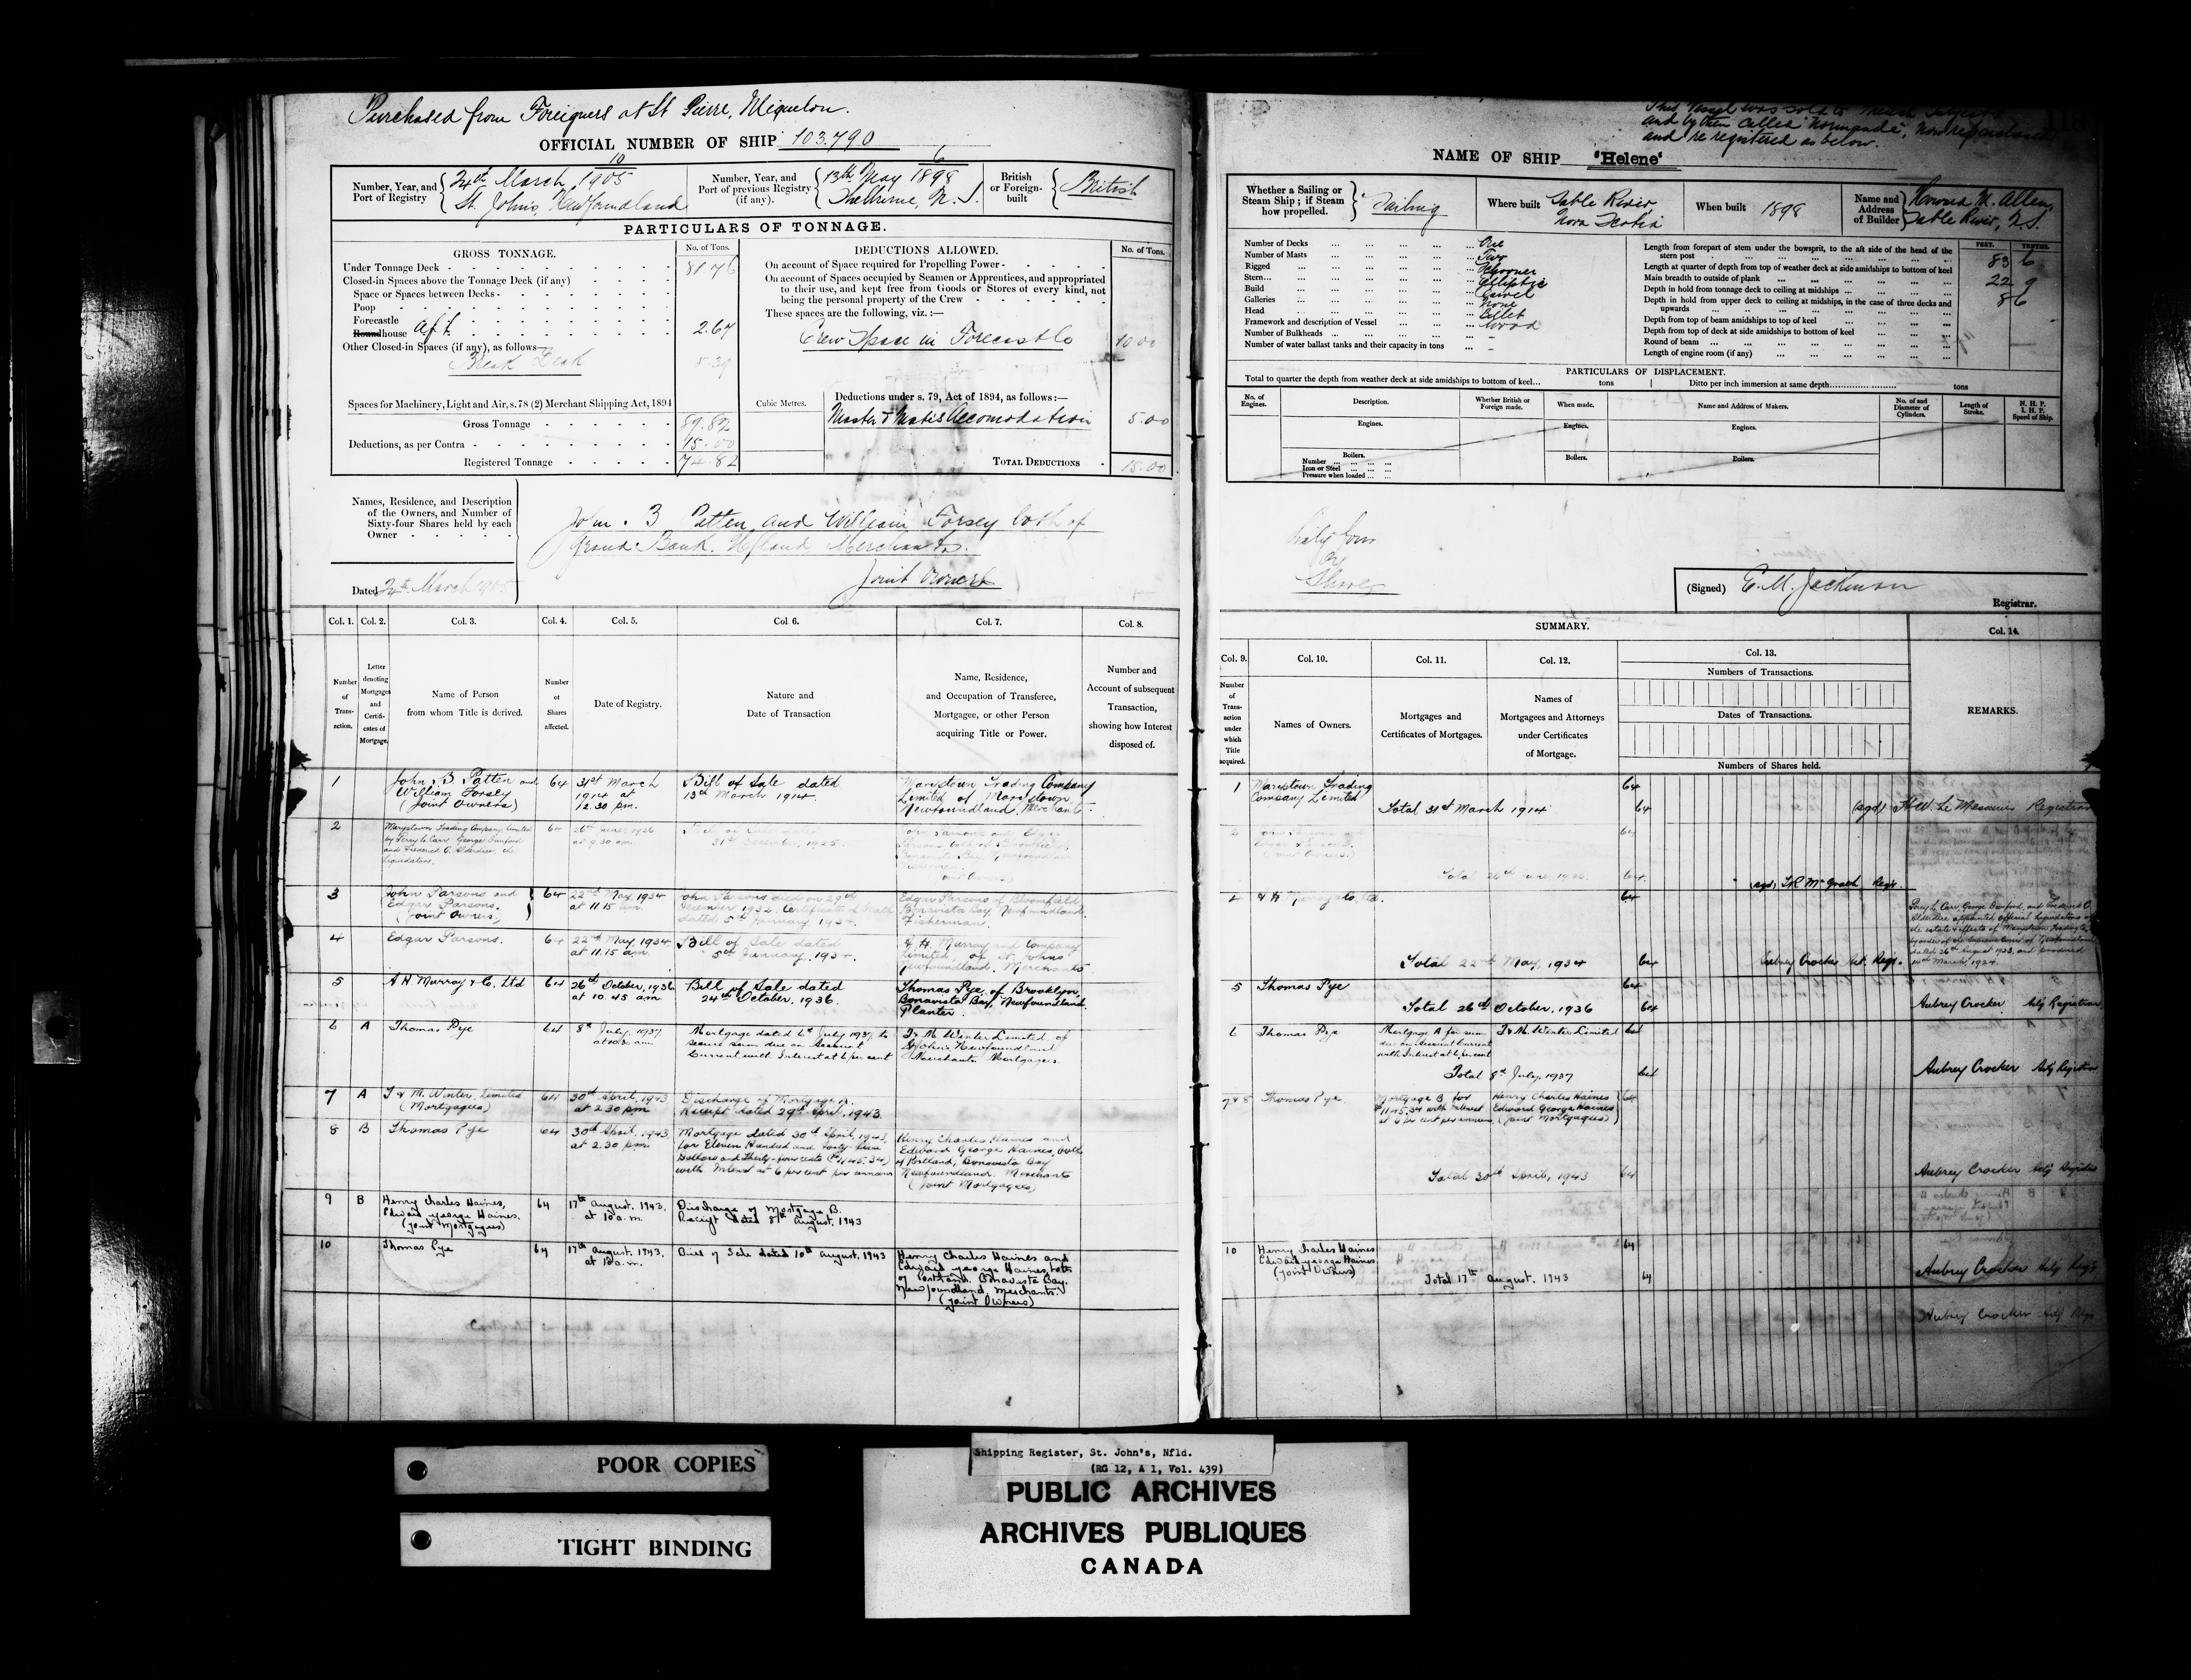 Purchased from Foreigners at St Pierre, Miquelon.
OFFICIAL NUMBER OF SHIP 103.790
Number, Year, and Port of Registry
10
24th March, 1905
St. John's, Newfoundland
Number, Year, and Port of previous Registry (if any).
6
13th May 1898
Shelburne, N. S.
British or Foreign-built
British
PARTICULARS OF TONNAGE.
GROSS TONNAGE.
No. of Tons.
Under Tonnage Deck 81.76
Closed-in Spaces above the Tonnage Deck (if any)
Space or Spaces between Decks
Poop
Forecastle
Roundhouse aft 2.67
Other Closed-in Spaces (if any), as follows
Break Deck 5.39
Spaces for Machinery, Light and Air, s. 78 (2) Merchant Shipping Act, 1894
Gross Tonnage 89.82
Deductions, as per Contra 15.00
Registered Tonnage 74.82
Cubic Metres.
DEDUCTIONS ALLOWED.
No. of Tons.
On account of Space required for Propelling Power
On account of Spaces occupied by Seamen or Apprentices, and appropriated
to their use, and kept free from Goods or Stores of every kind, not
being the personal property of the Crew
These spaces are the following, viz. :—
Crew Space in Forecastle 10.00
Deductions under s. 79, Act of 1894, as follows :—
Master & Mate's Accomodation 5.00
TOTAL DEDUCTIONS 15.00
Names, Residence, and Description
of the Owners, and Number of
Sixty-four Shares held by each
Owner
John B Patten and William Forsey both of
Grand Bank. Nfland Merchants.
Joint Owners
Dated 24th March 1905
Col. 1. Col. 2. Col. 3. Col. 4. Col. 5. Col. 6. Col. 7. Col. 8.
Number of Transaction.
Letter denoting Mortgages and Certificates of Mortgage.
Name of Person from whom Title is derived.
Number of Shares affected.
Date of Registry.
Nature and Date of Transaction
Name, Residence, and Occupation of Transferee, Mortgagee, or other Person acquiring Title or Power.
Number and Account of subsequent Transaction, showing how Interest disposed of.
1
John B Patten and
William Forsey
(Joint Owners)
64
31st March
1914 at
12.30 pm.
Bill of Sale dated
13th March 1914.
Marystown Trading Company
Limited of Marystown
Newfoundland. Merchants.
2
Marystown Trading Company Limited
by Percy L. Carr George Bursford
and Frederick C. Alderdice, the
Liquidators.
64
26th June, 1926
at 9.30 am.
31st December, 1925
John Parsons and Edgar
Parsons both of Bloomfield,
Bonavista Bay, Newfoundland
3
John Parsons and
Edgar Parsons.
(Joint Owners)
64
22nd May, 1934
at 11.15 am.
John Parsons died on 29th
December 1932. Certificate of Death
dated 5th January, 1934.
Edgar Parsons of Bloomfield
Bonavista Bay, Newfoundland.
Fisherman.
4
Edgar Parsons.
64
22nd May, 1934
at 11.15 am.
Bill of Sale dated
5th January, 1934.
A. H. Murray and Company
Limited, of St. Johns
Newfoundland, Merchants
5
A H Murray & Co. Ltd
64
26th October, 1936
at 10.45 am
Bill of Sale dated
24th October, 1936.
Thomas Pye of Brooklyn,
Bonavista Bay, Newfoundland
Planter.
6 A
Thomas Pye
64
8th July, 1937
at 10.30 am.
Mortgage dated 6th July 1937 to
secure sum due on Account
Current with Interest at 6 per cent
T & M. Winter Limited of
St Johns, Newfoundland
Merchants Mortgagees.
7 A
T & M. Winter, Limited
(Mortgagees)
64
30th April, 1943
at 2.30 pm
Discharge of Mortgage A.
Receipt dated 29th April, 1943.
8 B
Thomas Pye
64
30th April, 1943
at 2.30 pm
Mortgage dated 30th April, 1943,
for Eleven Hundred and forty five
dollars and thirty-four cents ($1145.34)
with Interest at 6 per cent per annum
Henry Charles Haines and
Edward George Haines, both
of Portland, Bonavista Bay
Newfoundland Merchants
(Joint Mortgagees)
9 B
Henry Charles Haines,
Edward George Haines.
(Joint Mortgagees)
64
17th August, 1943.
at 10 a.m.
Discharge of Mortgage B.
Receipt dated 8th August, 1943
10
Thomas Pye
64
17th August, 1943.
at 10 a.m.
Bill of Sale dated 10th August, 1943
Henry Charles Haines and
Edward George Haines, both
of Portland, Bonavista Bay.
Newfoundland, Merchants.
(Joint Owners)
This Vessel was sold to French
and by them called "Normande", now repurchased
and re registered as below.
NAME OF SHIP "Helene"
Whether a Sailing or Steam Ship ; if Steam how propelled.
Sailing
Where built
Sable River
Nova Scotia
When built 1898
Name and Address of Builder
Howard M. Allen,
Sable River, N.S.
Number of Decks One
Number of Masts Two
Rigged Schooner
Stern Elliptic
Build Carvel
Galleries None
Head Billet
Framework and description of Vessel Wood
Number of Bulkheads –
Number of water ballast tanks and their capacity in tons –
FEET. TENTHS.
Length from forepart of stem under the bowsprit, to the aft side of the head of the
stern post 83 6
Length at quarter of depth from top of weather deck at side amidships to bottom of keel
Main breadth to outside of plank 22 9
Depth in hold from tonnage deck to ceiling at midships 8 6
Depth in hold from upper deck to ceiling at midships, in the case of three decks and
upwards
Depth from top of beam amidships to top of keel
Depth from top of deck at side amidships to bottom of keel
Round of beam
Length of engine room (if any)
PARTICULARS OF DISPLACEMENT.
Total to quarter the depth from weather deck at side amidships to bottom of keel... tons
Ditto per inch immersion at same depth tons
No. of Engines.
Description.
Whether British or Foreign made.
When made.
Name and Address of Makers.
No. of and Diameter of Cylinders.
Length of Stroke.
N. H. P.
I. H. P.
Speed of Ship.
Engines. Engines. Engines.
Boilers. Boilers. Boilers.
Number
Iron or Steel
Pressure when loaded
Sixty four
Shares
(Signed) E. M. Jackman
Registrar.
SUMMARY.
Col. 9. Col. 10. Col. 11. Col. 12. Col. 13. Col. 14.
Number of Transaction under which Title acquired.
Names of Owners.
Mortgages and Certificates of Mortgages.
Names of Mortgagees and Attorneys under Certificates of Mortgage.
Numbers of Transactions.
Dates of Transactions.
Numbers of Shares held.
REMARKS.
1
Marystown Trading
Company Limited
64
Total 31st March 1914
64
(sgd) H.W. Le Messurier Registrar
2
64
Total 26th June 1926.
64.
(sgd) T.R. McGrath Regr.
4
A H Murray & Co. Ltd.
64
Percy L. Carr, George Bursford, and Frederick C.
Alderdice appointed official Liquidators of
the estate & effects of Marystown Trading Co.
by order of the Supreme Court of Newfoundland
dated 26th August 1923, and produced
14th March, 1924.
Total 22nd May, 1934
64
Aubrey Crocker Act. Regr.
5
Thomas Pye
64
Total 26th October, 1936
64
Aubrey Crocker Actg Registrar
6
Thomas Pye
Mortgage A for sum
due on Account Current
with Interest at 6 per cent
T & M. Winter Limited
64
Total 8th July, 1937
64
Aubrey Crocker Actg Registrar
7 & 8
Thomas Pye.
Mortgage B for
$1145.34 with Interest
at 6 per cent per annum
Henry Charles Haines
Edward George Haines
(Joint Mortgagees)
64
Total 30th April, 1943
64
Aubrey Crocker Actg Registrar
10
Henry Charles Haines
Edward George Haines
(Joint Owners)
64
Total 17th August, 1943
64
Aubrey Crocker Actg Regr
Aubrey Crocker Actg Regr
POOR COPIES
TIGHT BINDING
Shipping Register, St. John's, Nfld.
(RG 12, A 1, Vol. 439)
PUBLIC ARCHIVES
ARCHIVES PUBLIQUES
CANADA